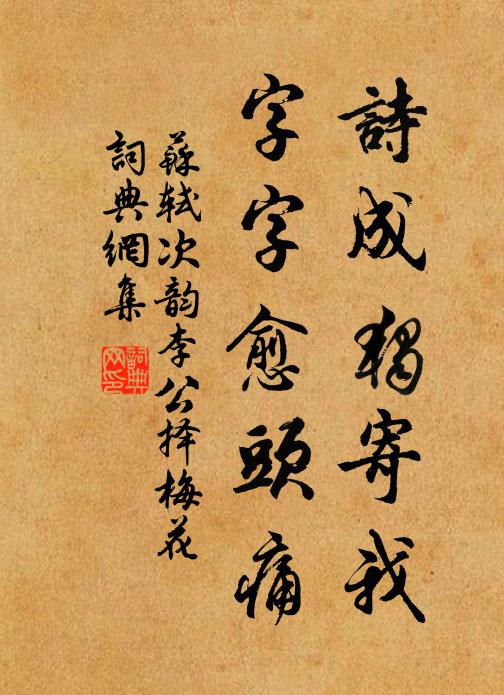 詩成獨寄我
字字愈頭痛
蘇軾次韵李公择梅花
詞典網集
詞典
网印